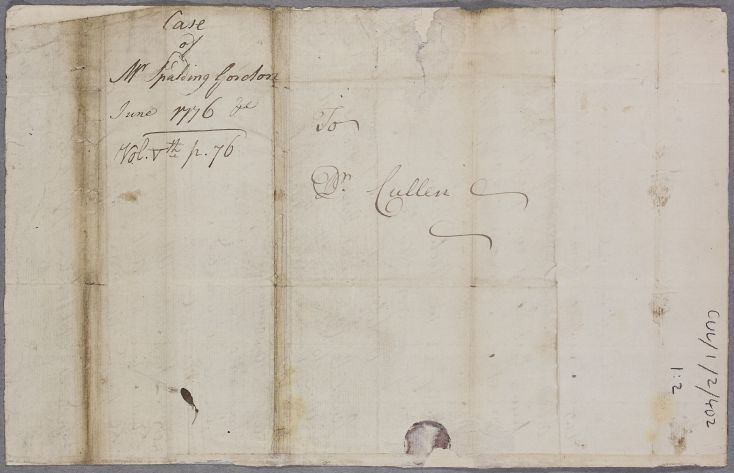 Case
of
Mr. Spalding Gordon
June 1776 &c
Vol. Vth p. 76
To
Dr. Cullen
CUL/1/2/402
1:2